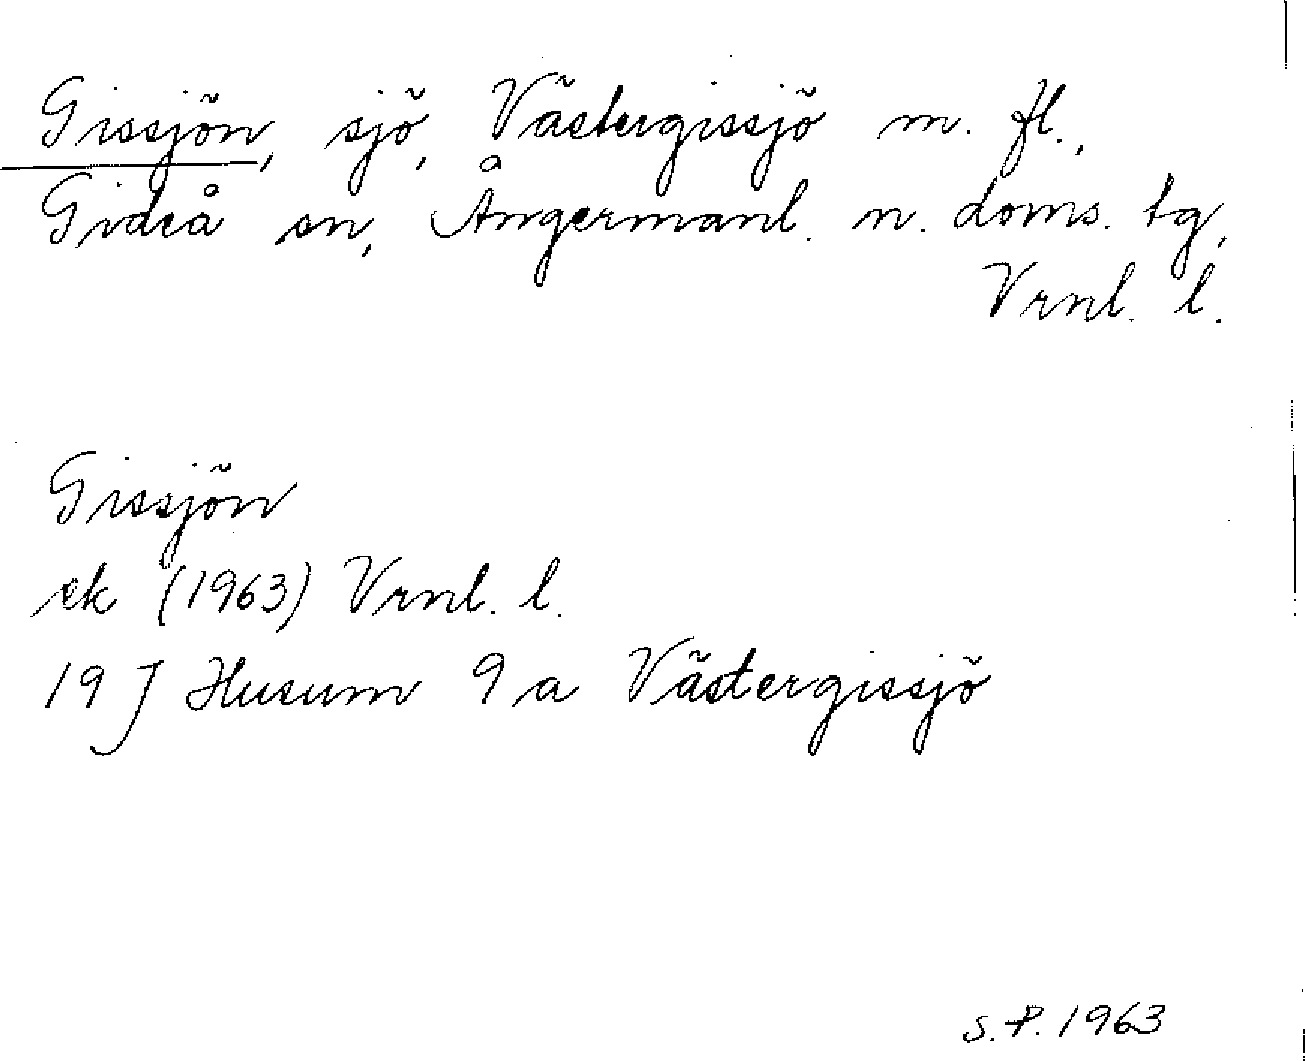 Gissjön, sjö, Västergissjö m. fl.,
Gideå sn, Ångermanl. n. doms. tg,
Vrnl. l.
Gissjön
ek (1963) Vrnl. l.
19 J Husum 9 a Västergissjö
S.P. 1963